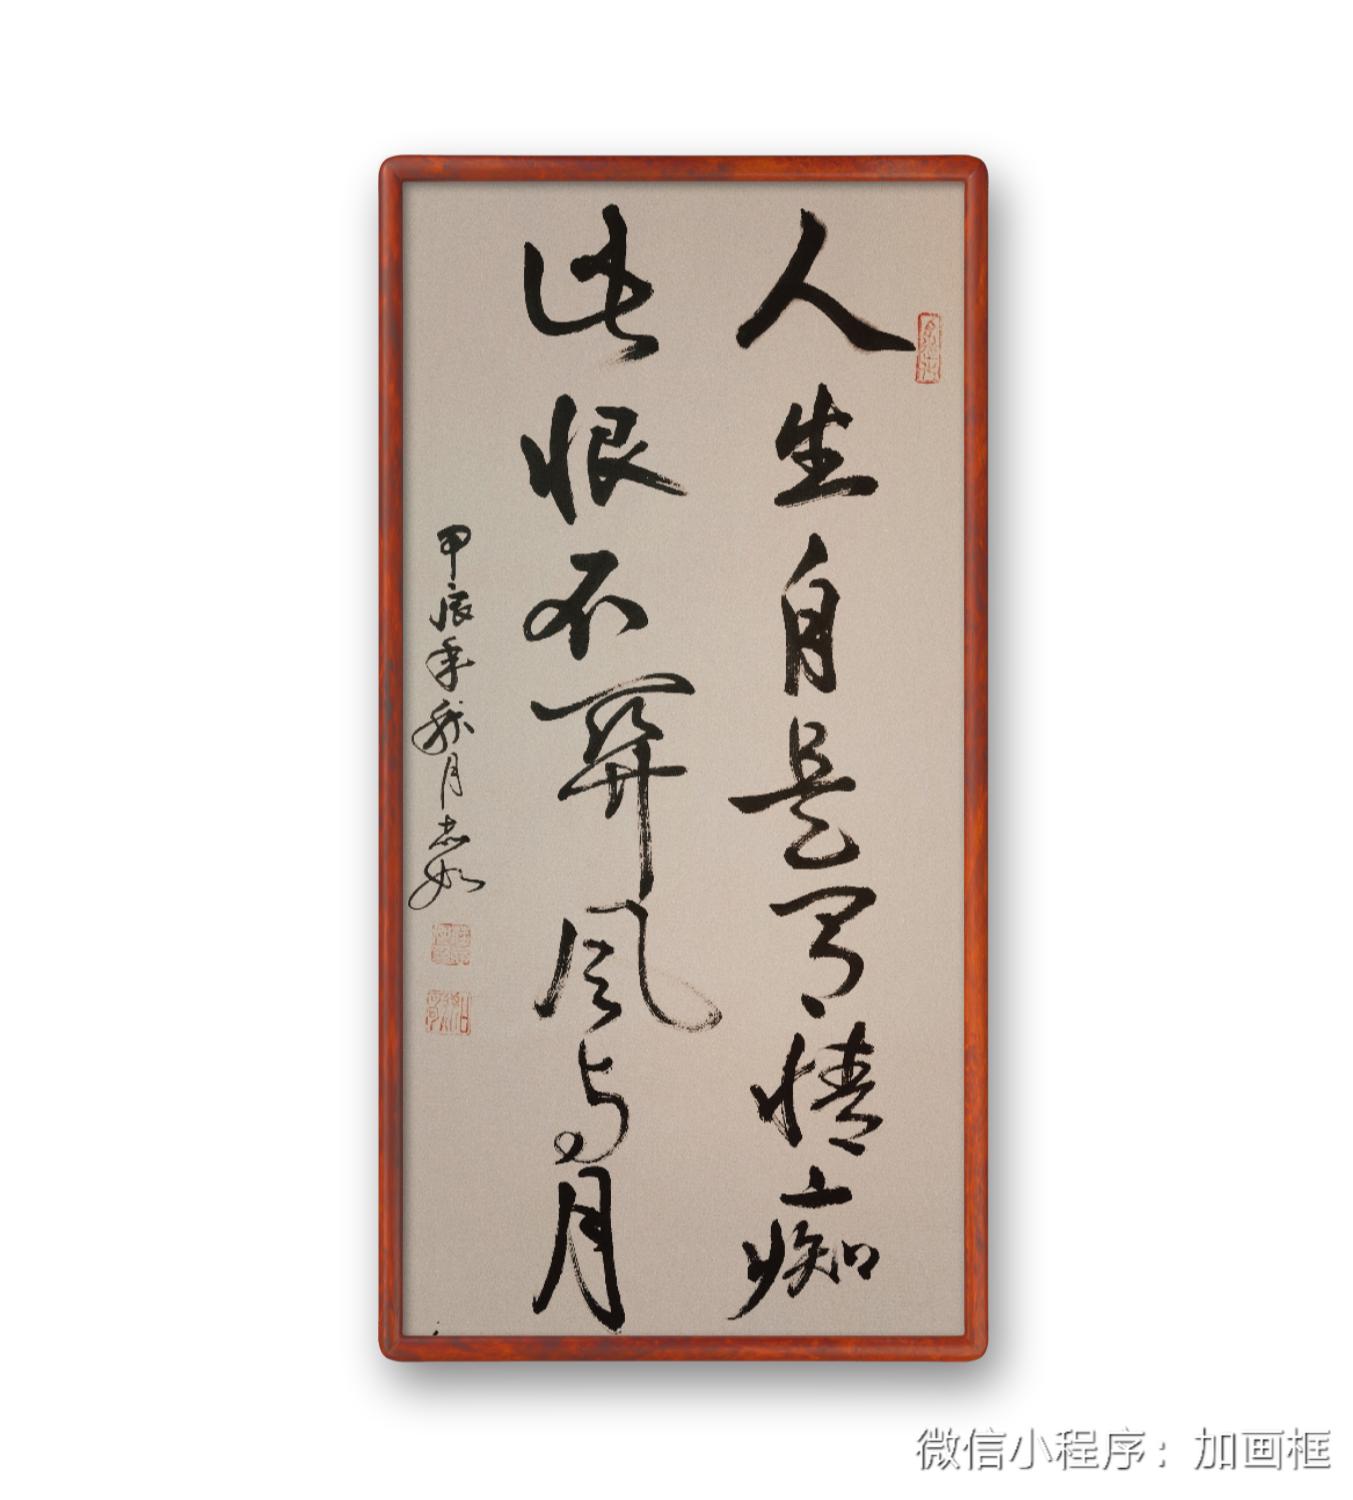 人生自是有情痴
此恨不关风与月
甲辰年秋月志如
微信小程序：加画框